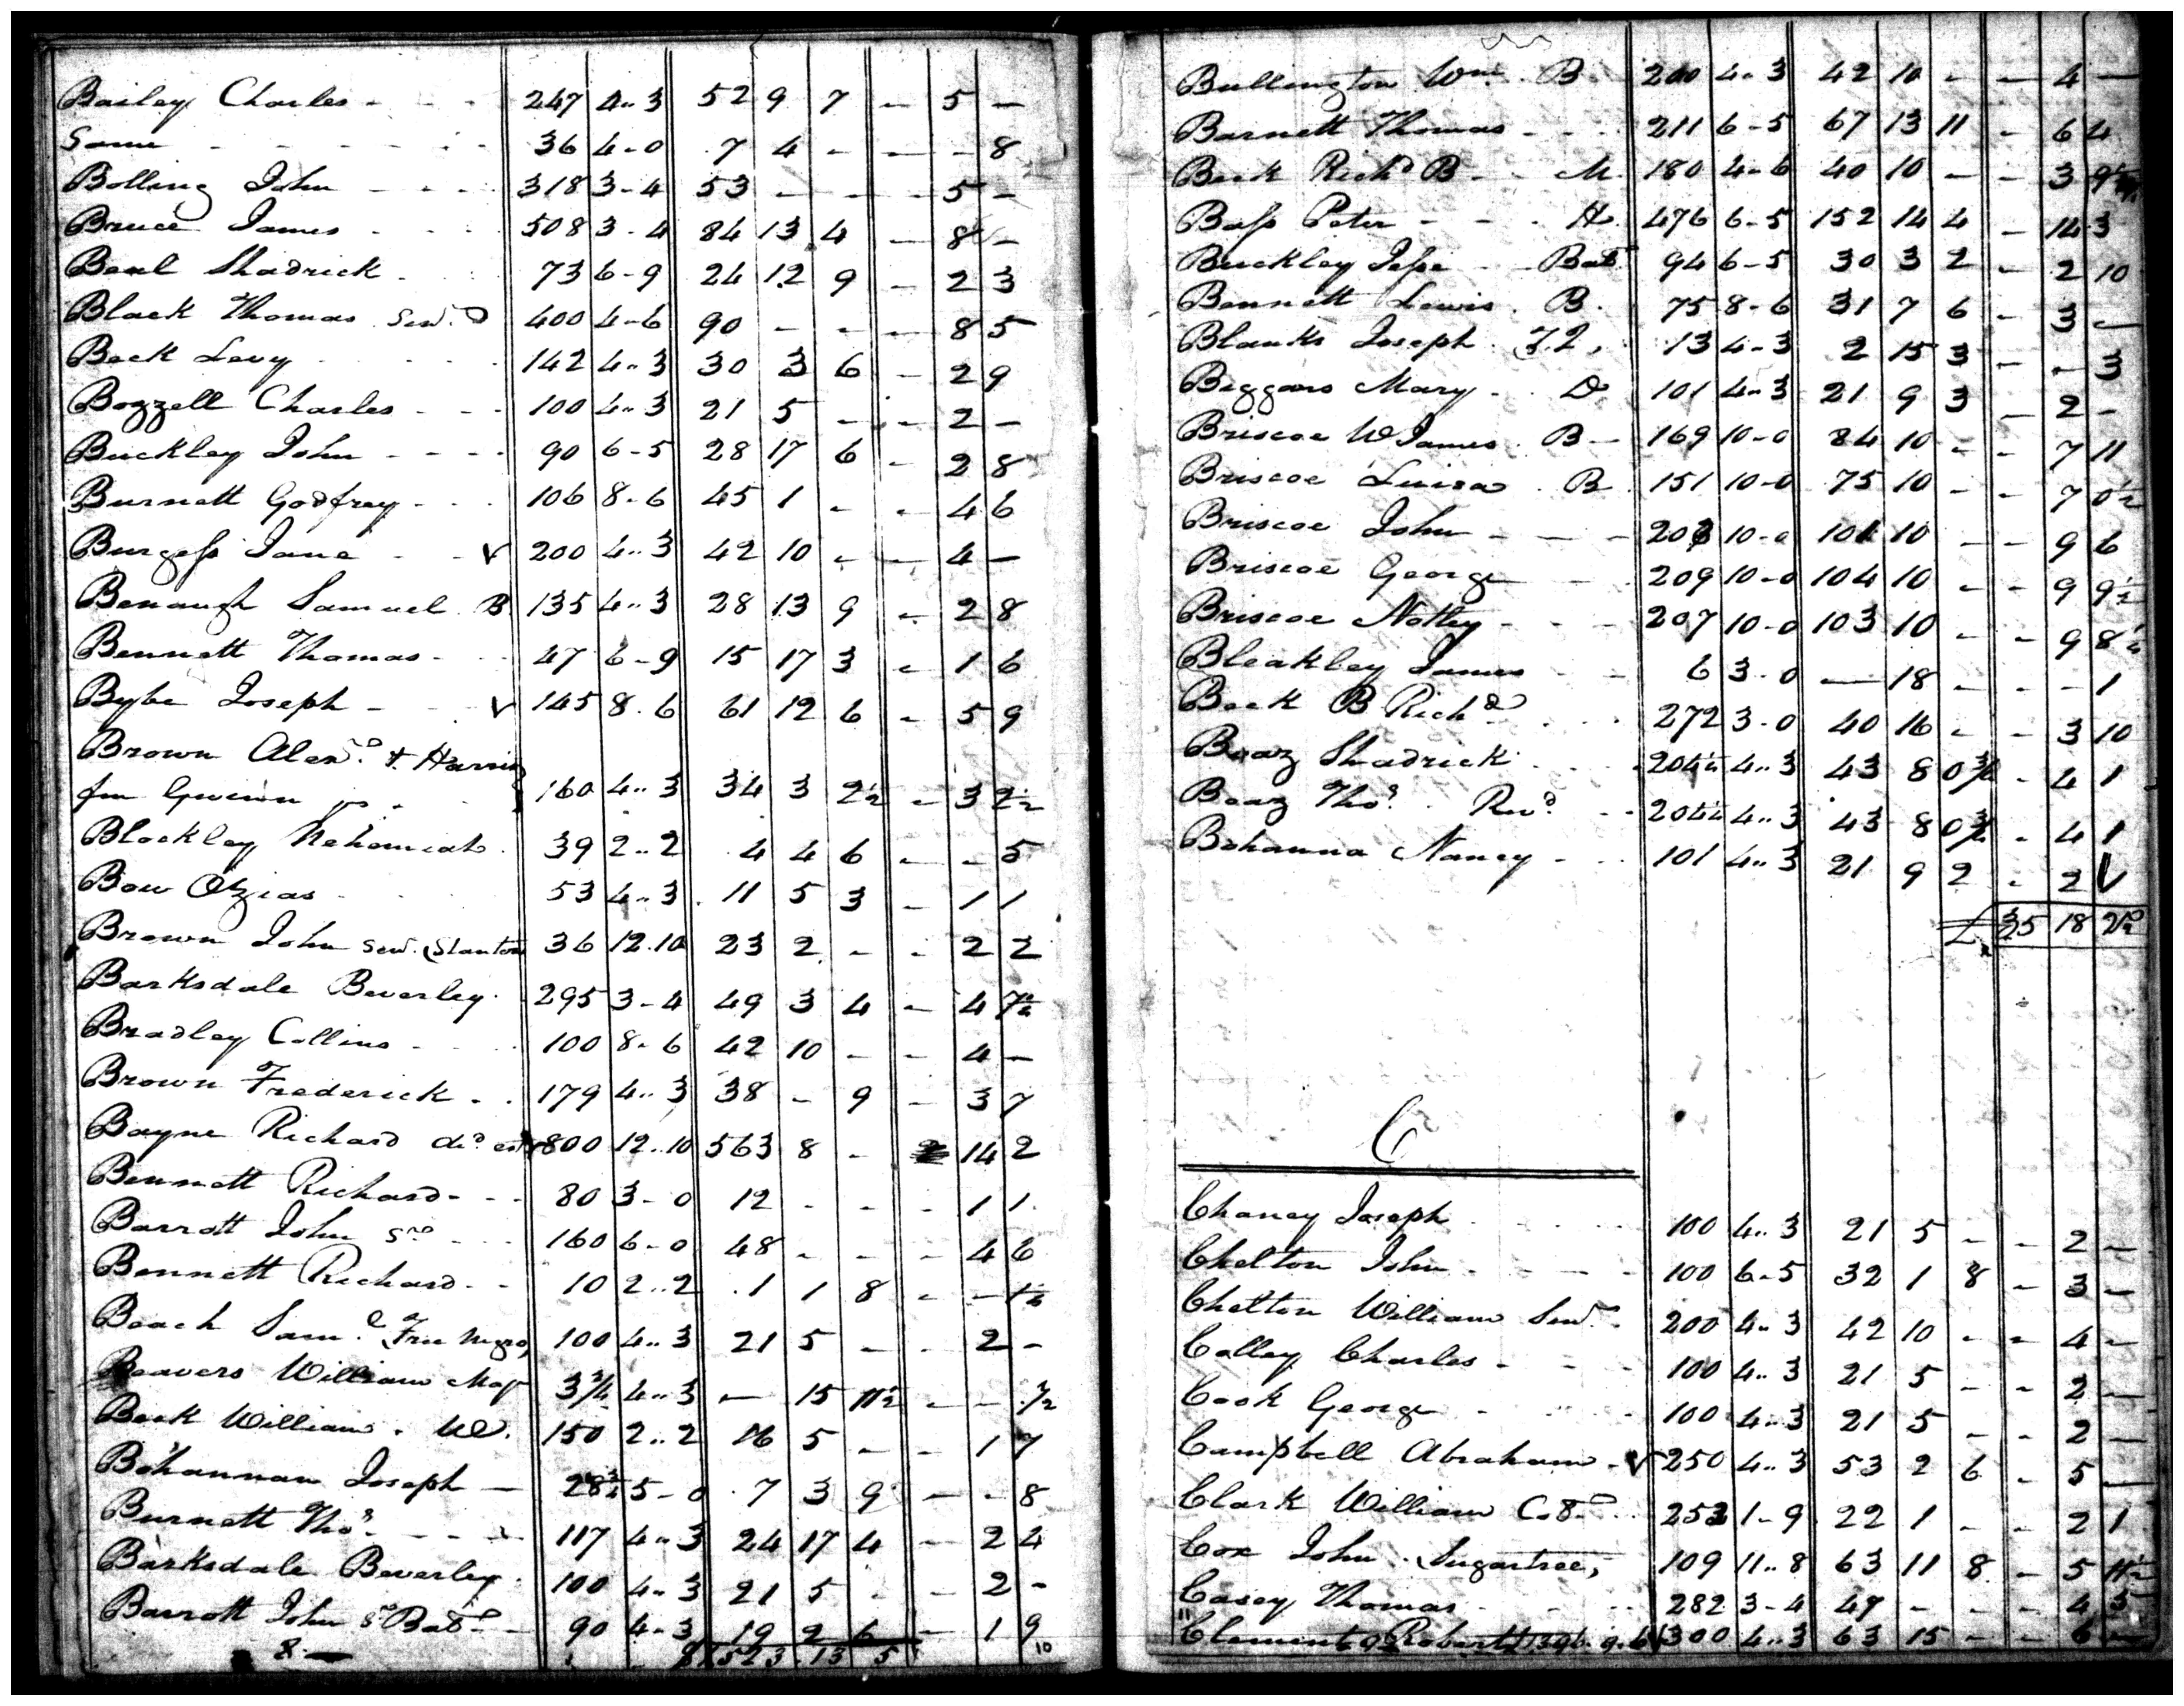 Bailey Charles - - - 247 4..3 52 9 7 - 5 -
Same - - - - - - 36 4-0 7 4 - - - 8
Bolling John - - - - 318 3-4 53 - - - 5 -
Bruce James - - - 508 3-4 84 13 4 - 8 -
Beal Shadrick - - - 73 6-9 24 12 9 - 2 3
Black Thomas Senr. 400 4-6 90 - - - 8 5
Beck Levy - - - 142 4..3 30 3 6 - 2 9
Bozzell Charles - - - 100 4..3 21 5 - - 2 -
Buckley John - - - - 90 6-5 28 17 6 - 2 8
Burnett Godfrey - - - 106 8-6 45 1 - - 4 6
Burgess Jane - - V 200 4..3 42 10 - - 4 -
Benaugh Samuel B 135 4..3 28 13 9 - 2 8
Bennett Thomas - - 47 6-9 15 17 3 - 1 6
Bybe Joseph - - V 145 8.6 61 12 6 - 5 9
Brown Alexr. &
fm Gwinn jr. 160 4..3 34 3 2½ - 3 2½
Blackley Nehemiah 39 2..2 4 4 6 - - 5
Bow Ozias 53 4..3 11 5 3 - 1 1
Brown John Senr. (Stanton 36 12.10 23 2 - - 2 2
Barksdale Beverley 295 3-4 49 3 4 - 4 7½
Bradley Collins - - - 100 8-6 42 10 - - 4 -
Brown Frederick - - 179 4..3 38 - 9 - 3 7
Bayne Richard decd. est 12..10 563 8 - 2 14 2
Bennett Richard - - - 80 3-0 12 - - - 1 1
Barrott John Sr. - - - 160 6-0 48 - - - 4 6
Bennett Richard - - 10 2..2 1 1 8 - - 1½
Beach Saml. Free Negro, 100 4..3 21 5 - - 2 -
Beavers William Maj 3¾ 4..3 - 15 11½ - - ½
Beck William . W. 150 2..2 16 5 - - 1 7
Bohannan Joseph - 28¾ 5-0 7 3 9 - - 8
Burnett Thos. - - - 117 4..3 24 17 4 - 2 4
Barksdale Beverley 100 4..3 21 5 - - 2 -
Barrott John Sr. Bat - 90 4-3 19 2 6 - 1 9
8 - 523 13 5 10
Bullington Wm. B. 200 4..3 42 10 - - 4 -
Barnett Thomas - - - 211 6-5 67 13 11 - 6 4
Beck Richd B - - M. 180 4-6 40 10 - - 3 9½
Bass Peter - - - H. 476 6-5 152 14 4 - 14 3
Buckley Jesse - - Bat. 94 6-5 30 3 2 - 2 10
Bennett Lewis . B. 75 8-6 31 7 6 - 3 -
Blanks Joseph . 13 4-3 2 15 3 - - 3
Beggars Mary - - D 101 4..3 21 9 3 - 2 -
Briscoe W James . B - 169 10-0 84 10 - - 7 11
Briscoe Luisa . B 151 10-0 75 10 - - 7 0½
Briscoe John - - - 203 10-0 101 10 - - 9 6
Briscoe George - - 209 10-0 104 10 - - 9 9½
Briscoe Notley - - - 207 10-0 103 10 - - 9 8½
Bleakley James - - 6 3-0 - 18 - - - 1
Beck B Richd. 272 3-0 40 16 - - 3 10
Boaz Shadrick 204½ 4..3 43 8 0¾ - 4 1
Boaz Thos. Revd. - - 204½ 4..3 43 8 0¾ - 4 1
Bohanna Nancy - - 101 4..3 21 9 2 - 2 V
£ 35 18 2½
C
Chaney Joseph - - - 100 4..3 21 5 - - 2 -
Chelton John - - - - 100 6-5 32 1 8 - 3 -
Chelton William Senr. 200 4..3 42 10 - - 4 -
Colley Charles - - - 100 4..3 21 5 - - 2 -
Cook George - - - 100 4..3 21 5 - - 2 -
Campbell Abraham - V 250 4..3 53 2 6 - 5 -
Clark William 1-9 22 1 - - 2 1
Cox John . Sugartree, 109 11..8 63 11 8 - 5 11½
Casey Thomas - - - 282 3-4 47 - - - 4 5
Clement Robert 300 4..3 63 15 - - 6 -